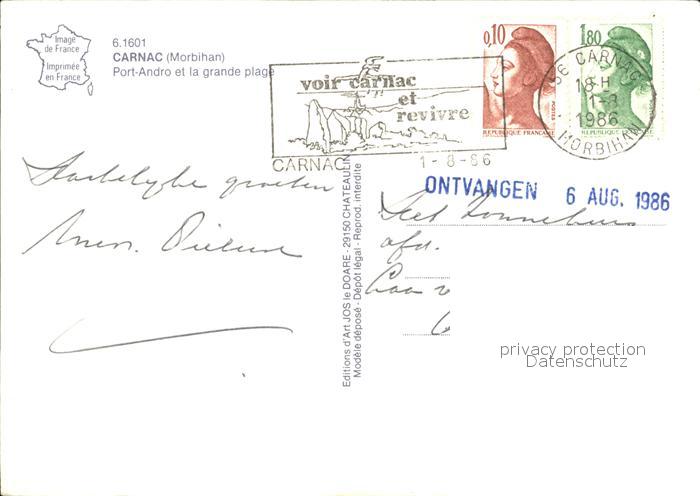 Image
de France
Imprimée
en France
6.1601
CARNAC (Morbihan)
Port-Andro et la grande plage
voir carnac
et
revivre
CARNAC 1-8-86
0,10
POSTES
REPUBLIQUE FRANCAISE
1,80
REPUBLIQUE FRANCAISE
56 CARNAC
18 H
1-8
1986
MORBIHAN
ONTVANGEN 6 AUG. 1986
Hartelijke groeten
afd.
Editions d'Art JOS le DOARE - 29150 CHATEAULIN
Modèle déposé - Dépôt légal - Reprod. interdite
privacy protection
Datenschutz